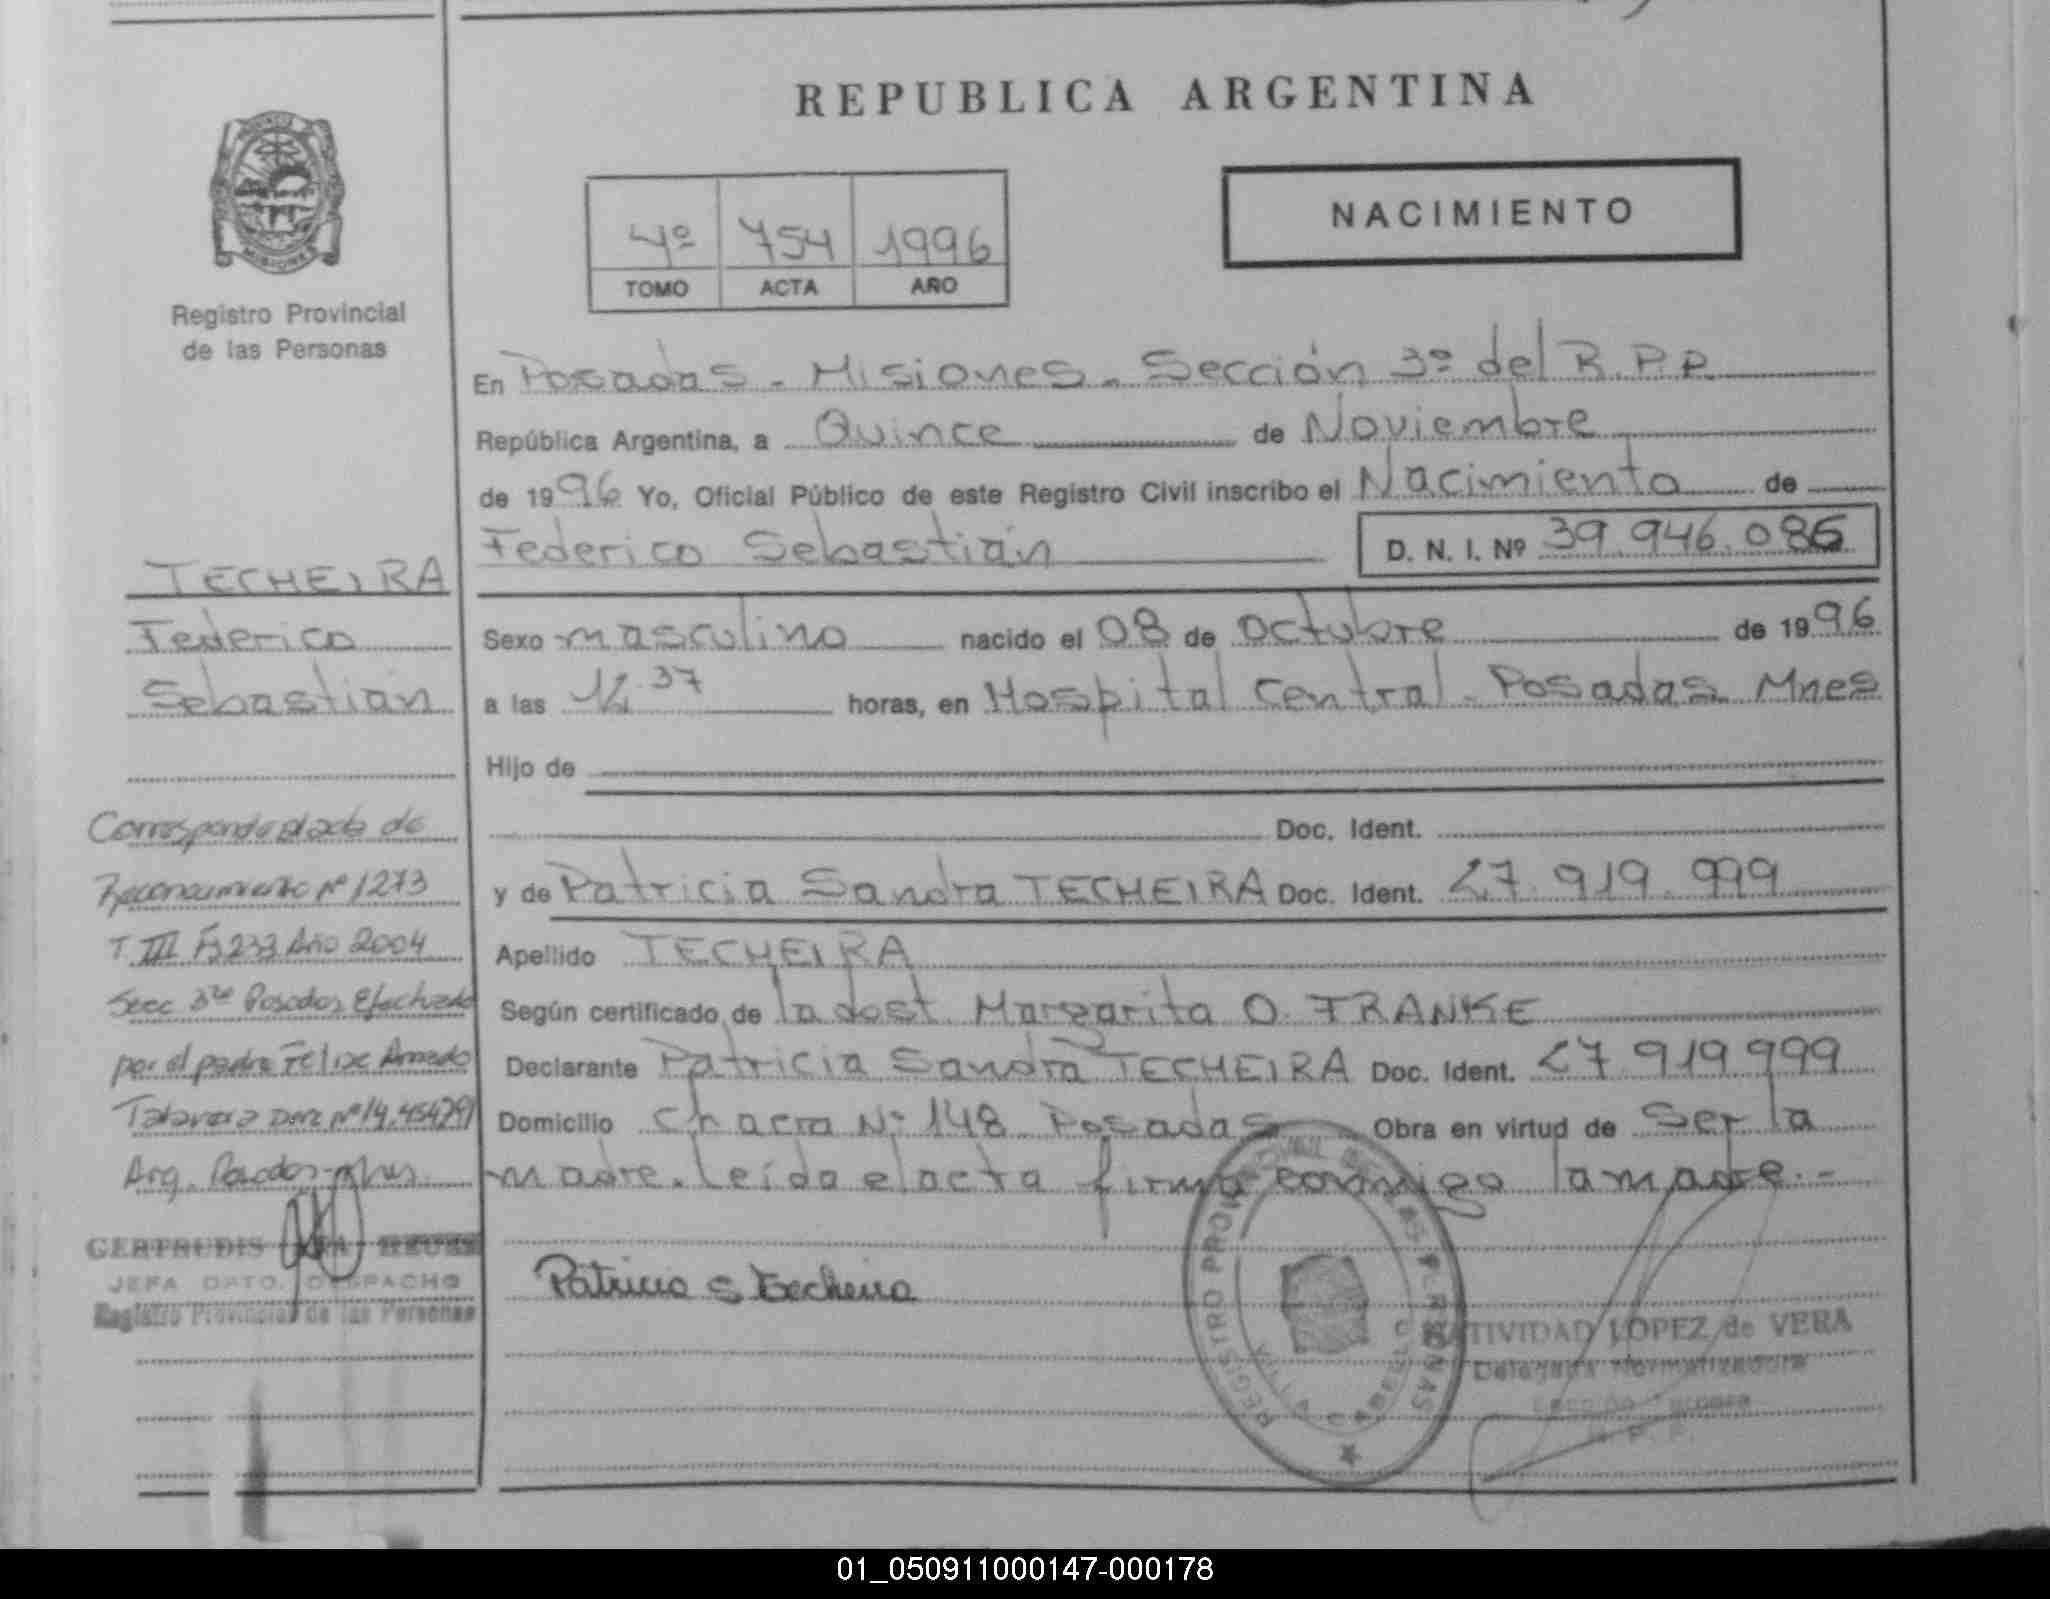 REPUBLICA ARGENTINA
PROVINCIA
MISIONES
Registro Provincial
de las Personas
NACIMIENTO
4º 754 1996
TOMO ACTA AÑO
En Posadas - Misiones - Sección 3º del R.P.P.
República Argentina, a Quince de Noviembre
de 1996 Yo, Oficial Público de este Registro Civil inscribo el Nacimiento de
Federico Sebastián D. N. I. Nº 39.946.086
TECHEIRA
Federico
Sebastián
Sexo masculino nacido el 08 de Octubre de 1996
a las horas, en Hospital Central - Posadas Mnes
Hijo de
Doc. Ident.
y de Patricia Sandra TECHEIRA Doc. Ident. 27.919.999
Apellido TECHEIRA
Según certificado de la dost. Margarita O. FRANKE
Declarante Patricia Sandra TECHEIRA Doc. Ident. 27.919.999
Domicilio Chacra Nº 148 Posadas Obra en virtud de Ser la
madre. Leída el acta firma conmigo la madre.-
Corresponde al acta de
Reconocimiento Nº 1273
T. III Fº 233 Año 2004
Secc 3ra Posadas Efectuado
por el padre Felix Amado
Talavera Nº 14.454.791
Arg. Posadas
GERTRUDIS
JEFA DPTO. DESPACHO
Registro Provincial de las Personas
Patricia S Techeira
REGISTRO PROVINCIAL DE LAS PERSONAS
NATIVIDAD LOPEZ de VERA
Delegada Normalizadora
Sección Tercera
R. P. P.
01_050911000147-000178